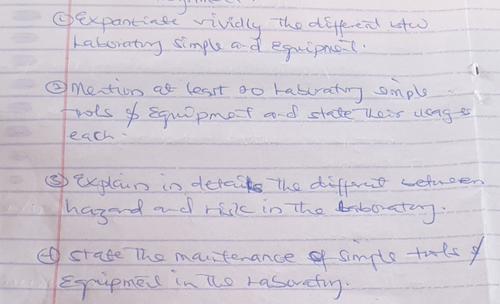 ① Expantiate vividly the different btw
Laboratory simple and Equipment.
② Mention at least 20 Laboratory simple
tools & Equipment and state their usages
each.
③ Explain in details the different between
hazard and risk in the Laboratory.
④ State the maintenance of simple tools &
Equipment in the Laboratory.